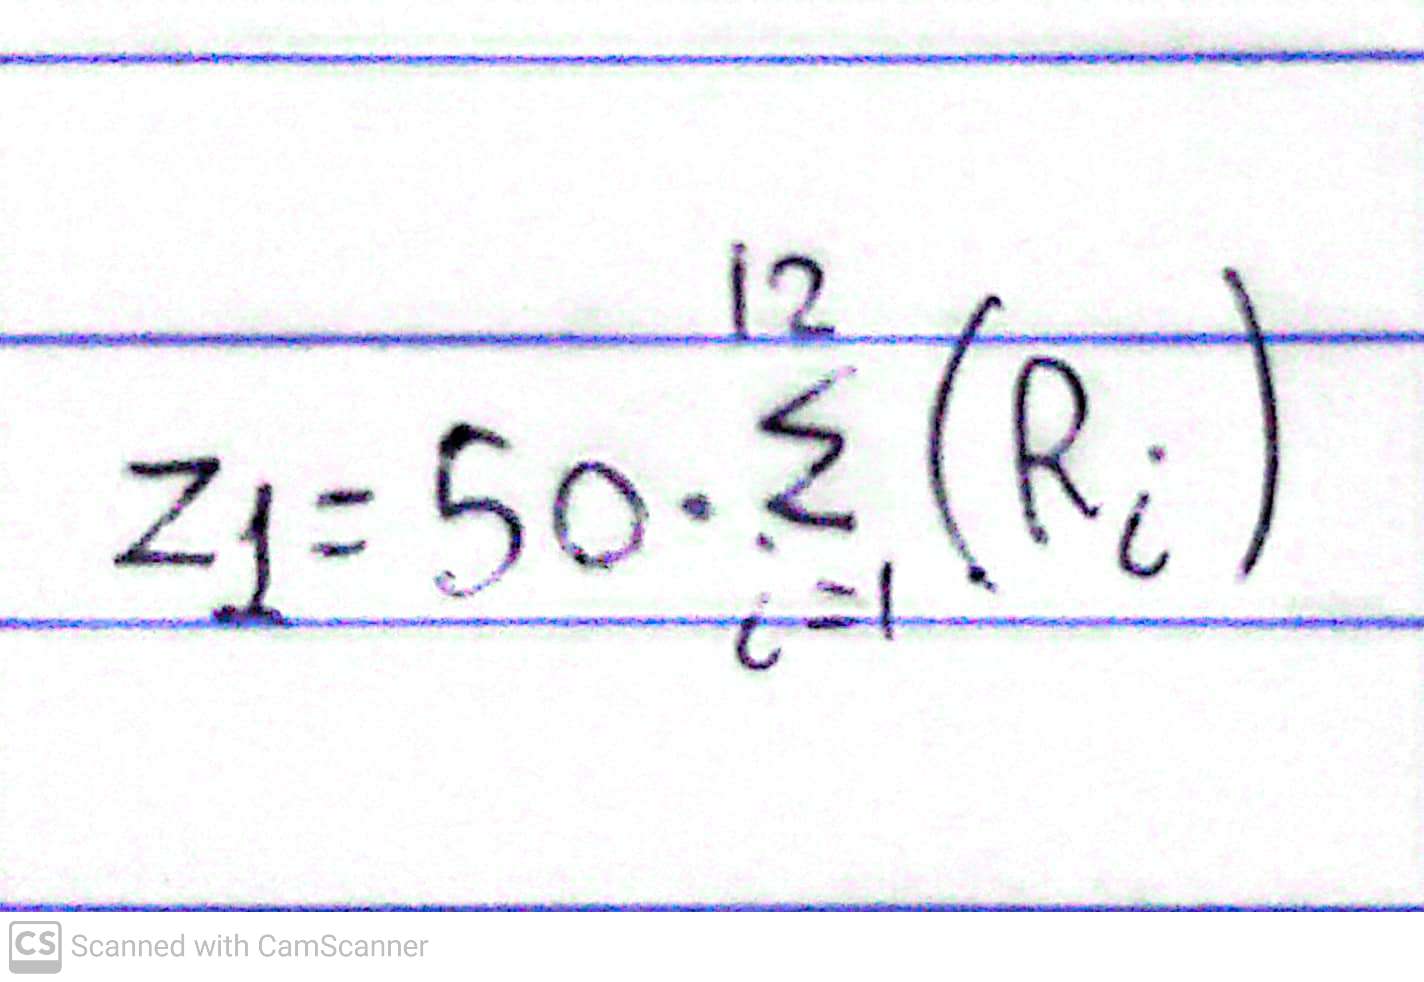 z₁ = 50 · ∑_{i=1}^{12} (Rᵢ)
CS Scanned with CamScanner